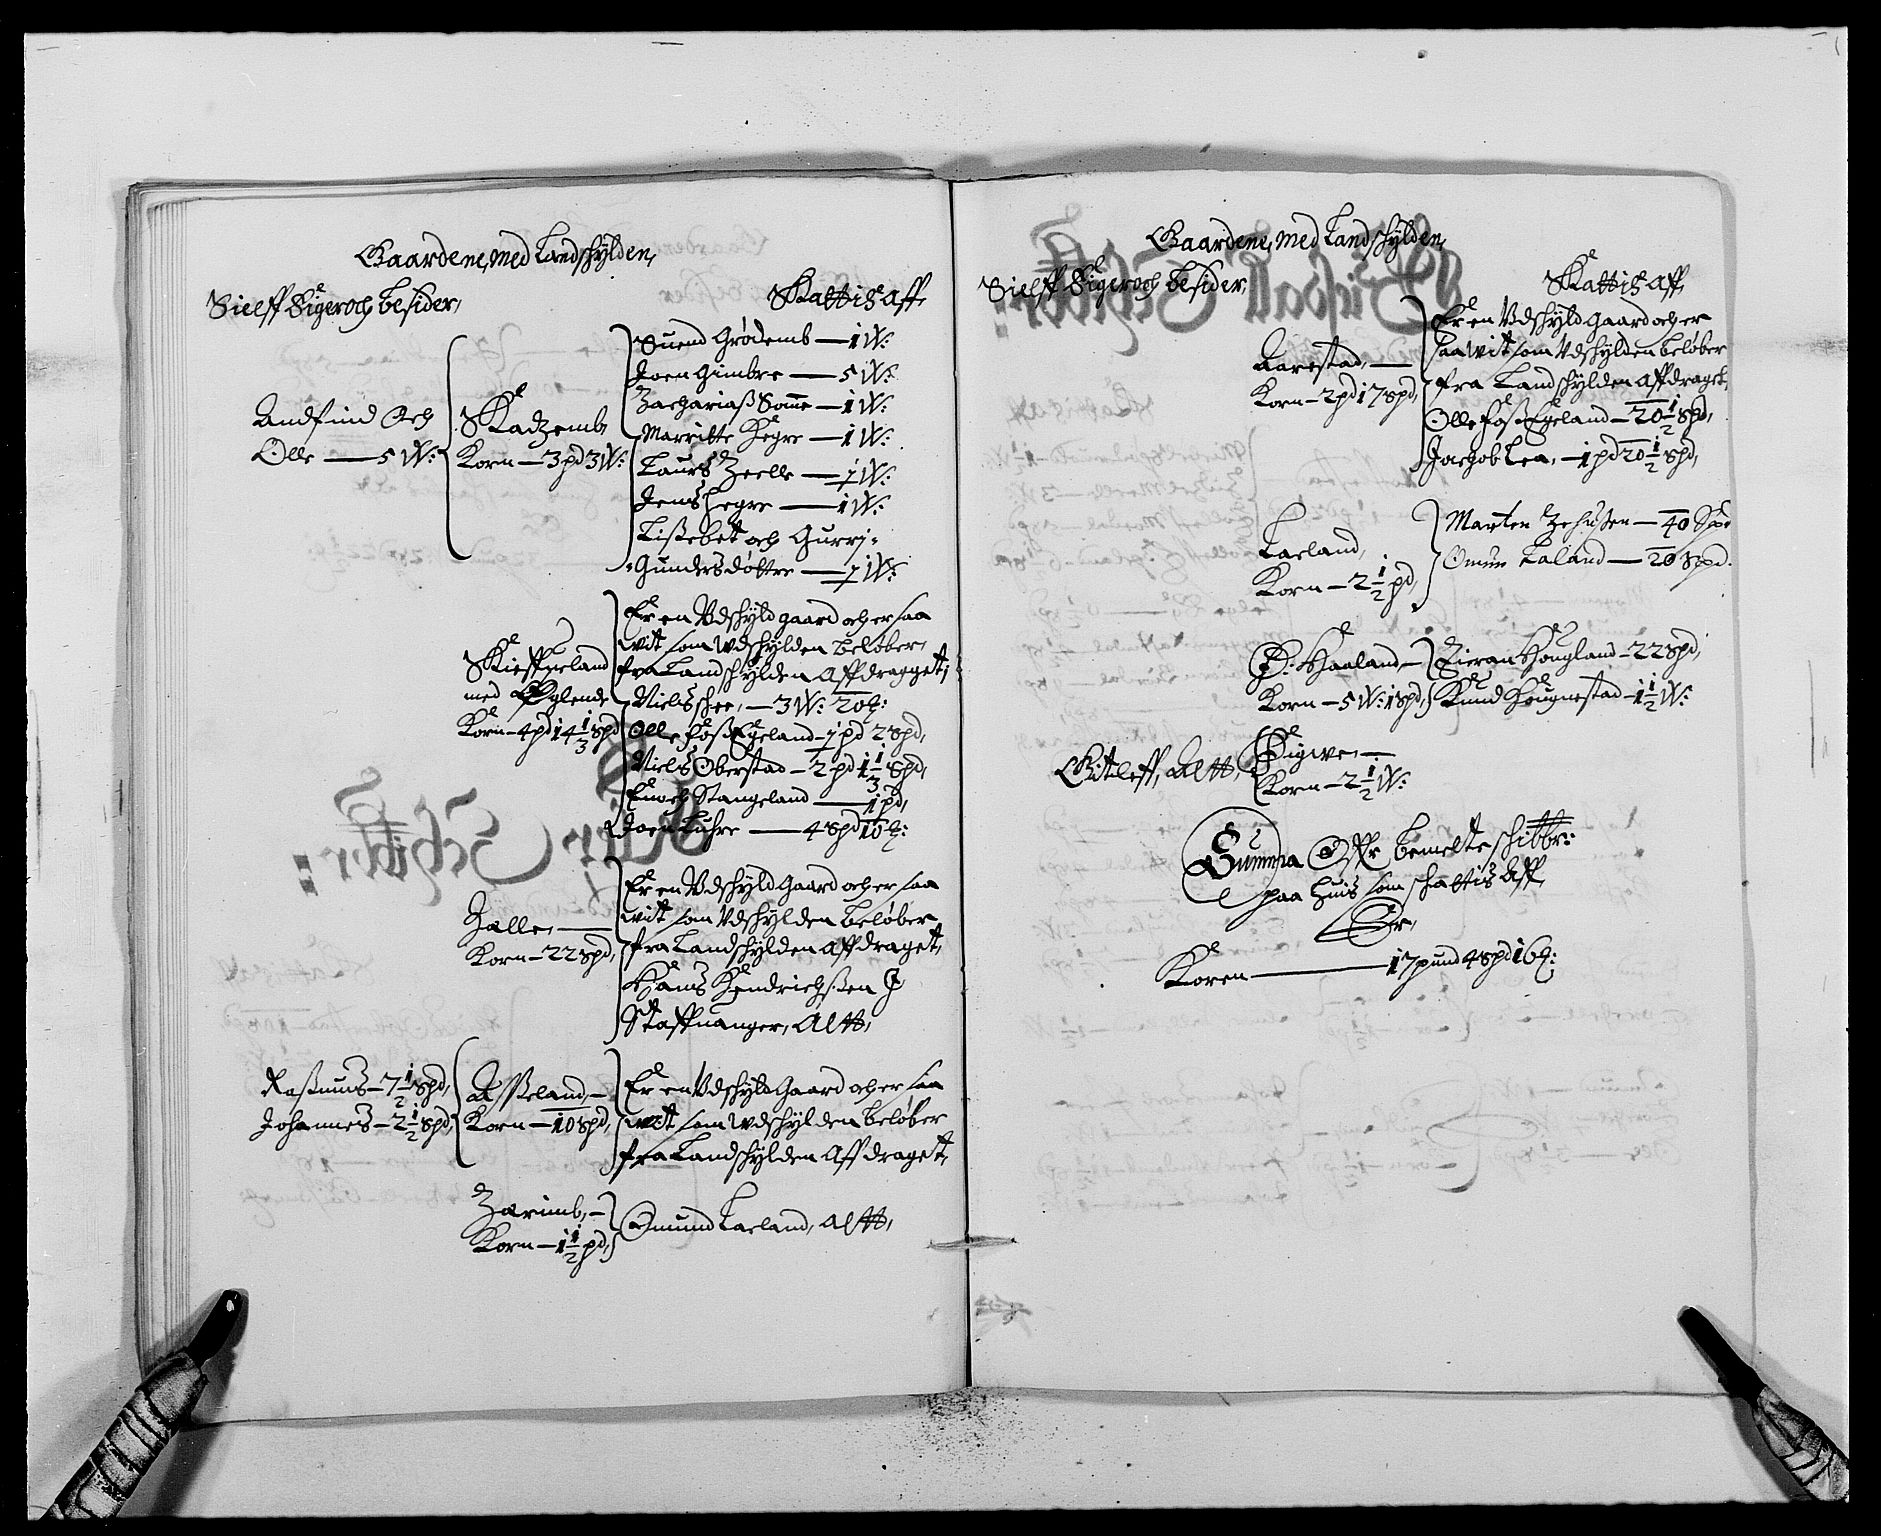 Gaardene, med Landschylden,
Sielff Eiger och besider,
Skattis aff,
Andfind Och
Olle — 5 W:
Skadzemb
Korn — 3 pd 3 W:
Suend Grødemb — 1 W:
Joen Gimbre — 5 W:
Zachariaß Somme — 1 W:
Marritte Hegre — 1 W:
Laurs Zeelle — 7 W:
Jens Hegre — 1 W:
Lißebet och Gurri
Gundersdøttre — 7 W:
Skieffueland
med Øglende
Korn — 4 pd 14 1/3 spd
Er en Vdschyld gaard och er saa
vit som vdschylden beløber,
fra Landschylden Affdragget,
Niels schee, — 3 W: 20
Olle Foß Egeland — 1 pd 2 spd,
Niels Oberstad — 2 pd 1 1/3 spd,
Enoch Stangeland — 1 pd,
Joen Luhre — 4 spd 16
Zalle, —
Korn — 22 spd,
Er en Vdschyld Gaard och er saa
vit som Vdschylden beløber
fra Landschylden affdraget,
Hans Hendrichßen J
Staffuanger, Altt,
Raßmus — 7 1/2 spd,
Johannes — 2 1/2 spd,
Aßeland, —
Korn — 10 spd,
Er en Vdschyld Gaard och er saa
vit som vdschylden beløber
fra Landschylden Affdraget,
Zarimb, —
Korn — 1 1/2 pd,
Omund Laeland, Altt,
Gaardene, med Landschylden,
Sielff Eiger och besider,
Skattis aff,
Aarestad, —
Korn — 2 pd 17 spd,
Er en Vdschyld gaard och er
saa vit som Vdschylden beløber
fra Landschylden Affdraget,
Olle Foß Egeland — 20 1/2 spd,
Jachob Lea, — 1 pd 20 1/2 spd,
Laeland,
Korn — 2 1/2 pd,
Marten — 40 Spd
Omun Laland — 20 spd.
Ø: Haaland, —
Korn — 5 W: 1 spd,
Eieran Hougland — 22 spd,
Knud Hougnestad — 1 1/2 W:
Gitleff, Altt,
Eigwe, —
Korn — 2 1/2 W:
Summa Offr bemelte schibbr:
paa huis som schattis Aff,
Er,
Koren — 17 pund 4 spd 16